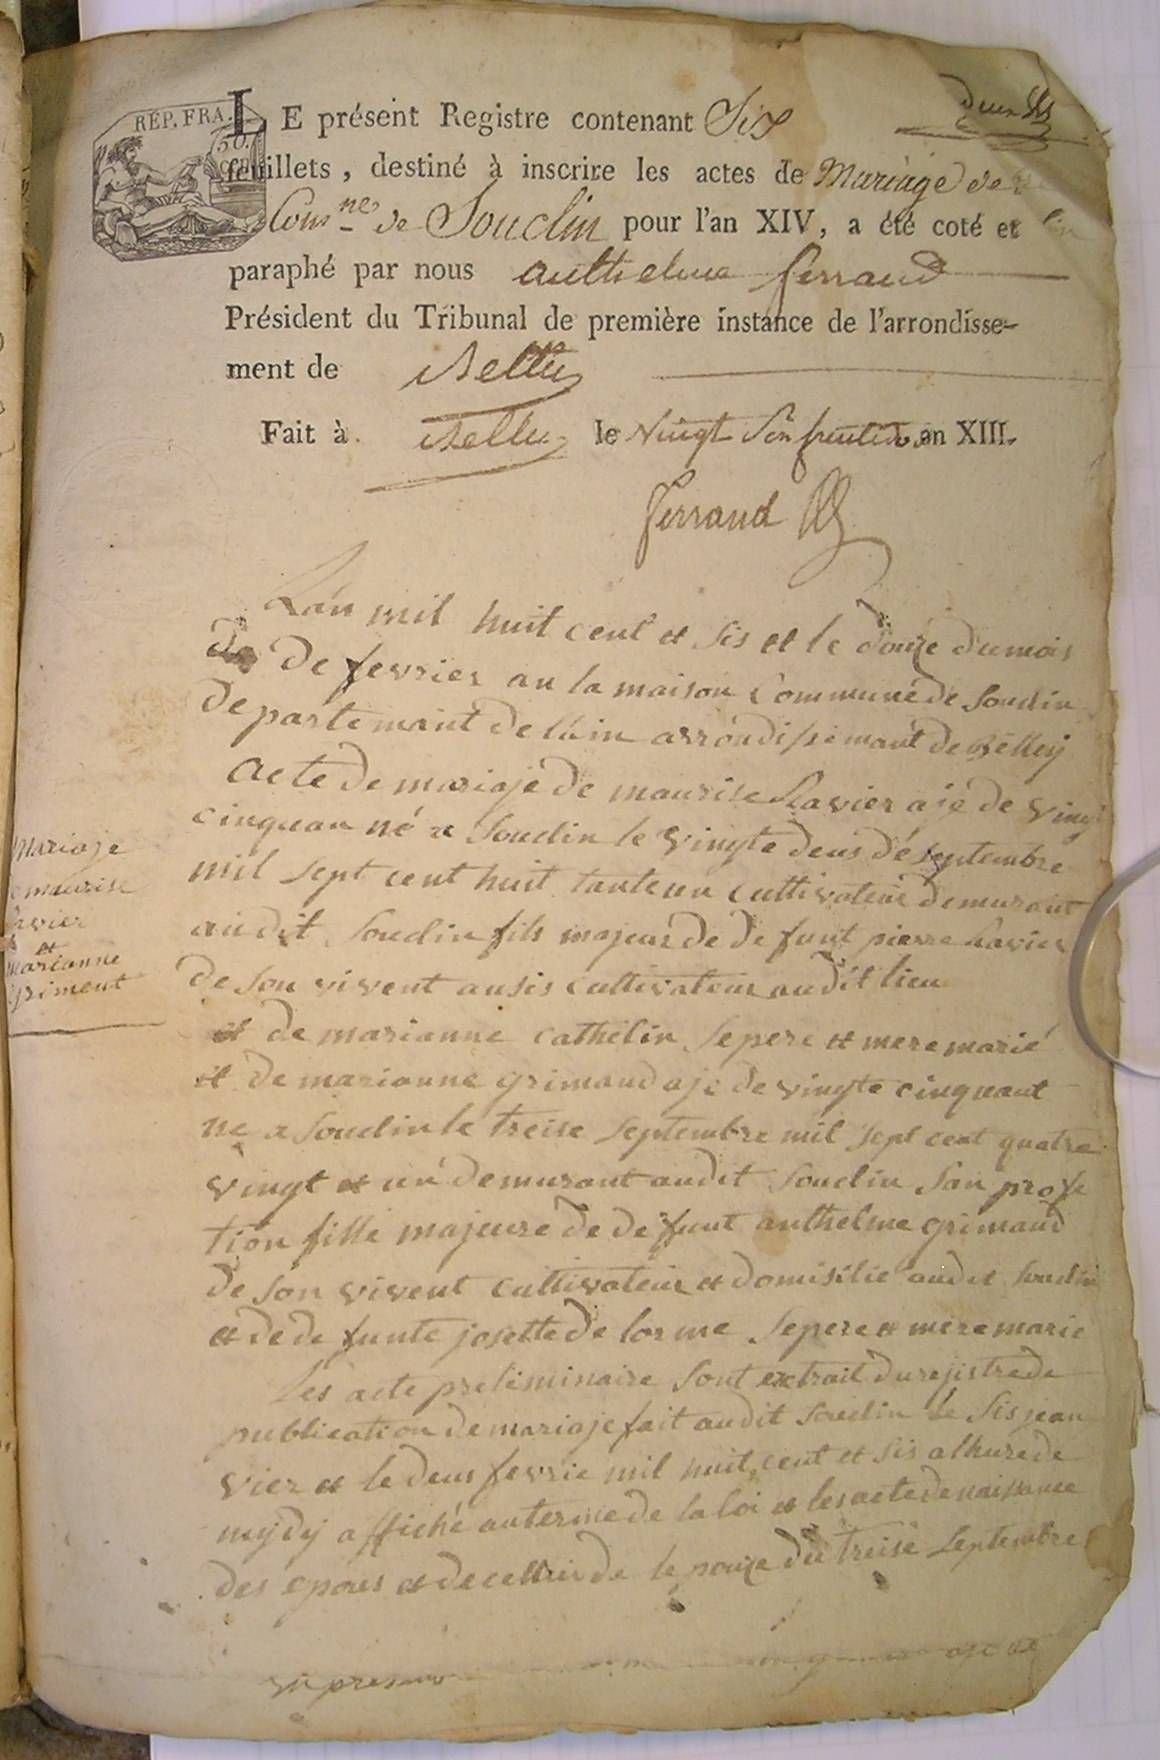 RÉP. FRA.
LE présent Registre contenant Six
feuillets, destiné à inscrire les actes de Mariage de
Comne de Souclin pour l'an XIV, a été coté et
paraphé par nous anthelme ferrand
Président du Tribunal de première instance de l'arrondisse-
ment de Belley
Fait à Belley le Vingt an XIII.
Ferrand
Lan mil huit cent et sis et le douze du mois
de fevrier au la maison Commune de Souclin
departemant de lain arrondissemant de Belley
acte de mariaje de maurise Ravier aje de vingt
cinquan né a Souclin le vingte deus de septembre
mil sept cent huit tanteun cultivateur demurant
audit Souclin fils majeur de defunt pierre Ravier
de son vivent ausis cultivateur audit lieu
et de marianne cathelin se pere et mere marié
et de marianne grimaud aje de vingte cinqueant
ne a Souclin le treise septembre mil sept cent quatre
vingt et un demurant audit Souclin san profe
tion fille majeure de defunt anthelme grimaud
de son vivent cultivateur et domisilie audit Souclin
et de defunte josette de lorme se pere et mere marie
Les acte preliminaire sont extrait du rejistre de
publication de mariaje fait audit Souclin le sis jean
vier et le deus fevrie mil huit cent et sis a lhure de
mydy affiché au terme de la loi et les acte de naissance
des epous et de cellui de le pouze du treise septembre
Mariaje
maurise
Ravier
et
marianne
griment